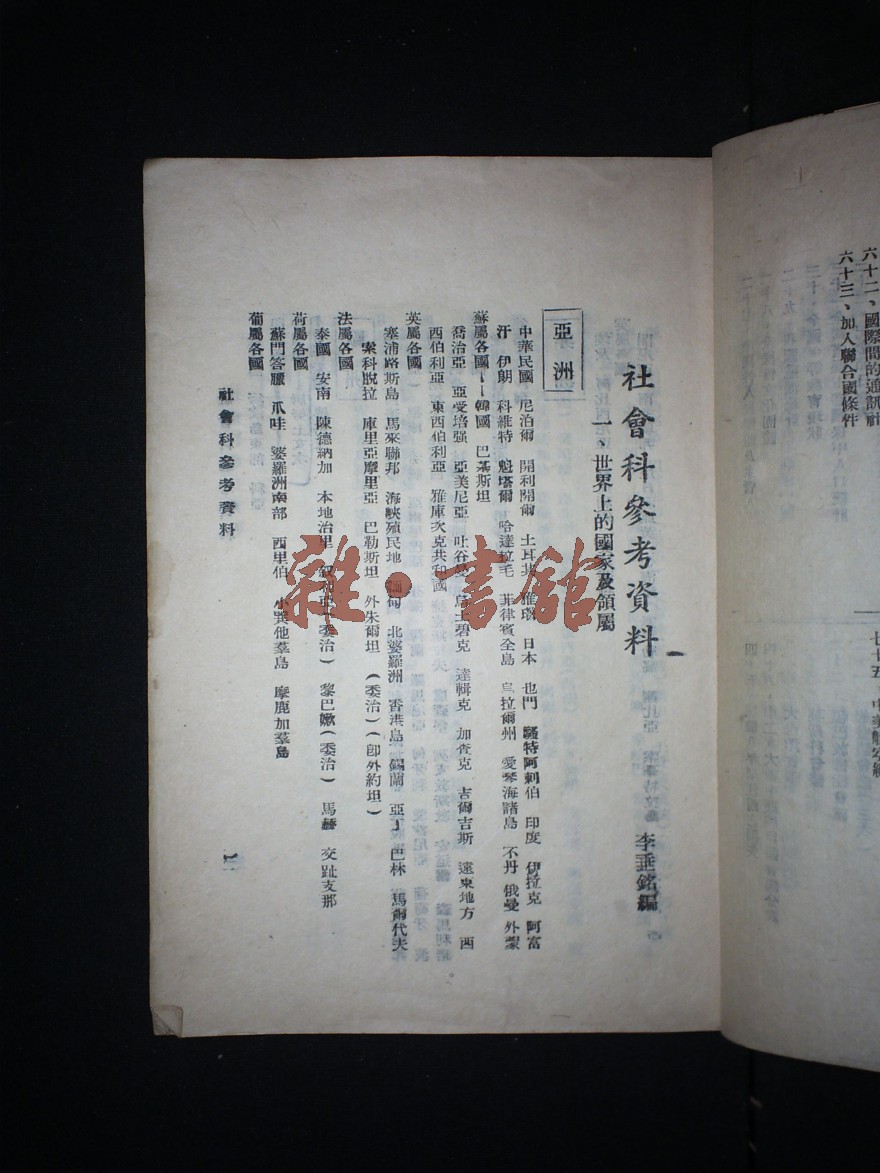 六十二、國際間的通訊社
六十三、加入聯合國條件
社會科參考資料
李垂銘編
一、世界上的國家及領屬
亞洲
中華民國 尼泊爾 開利開爾 土耳其 日本 也門 麗特阿剌伯 印度 伊拉克 阿富
汗 伊朗 科維特 魁塔爾 哈達拉毛 菲律賓全島 烏拉爾州 愛琴海諸島 不丹 俄曼 外蒙
蘇屬各國——韓國 巴基斯坦
喬治亞 亞愛培强 亞美尼亞 吐谷曼 烏士碧克 達輯克 加查克 吉爾吉斯 遠東地方 西
西伯利亞 東西伯利亞 雅庫次克共和國
英屬各國
塞浦路斯島 馬來聯邦 海峽殖民地 緬甸 北婆羅洲 香港島 錫蘭 亞丁 巴林 馬爾代夫
索科脫拉 庫里亞摩里亞 巴勒斯坦 外朱爾坦 (委治)(卽外約坦)
法屬各國
泰國 安南 陳德納加 本地治里 叙利亞(委治) 黎巴嫩(委治) 馬赫 交趾支那
荷屬各國
蘇門答臘 爪哇 婆羅洲南部 西里伯 小巽他羣島 摩鹿加羣島
葡屬各國
社會科參考資料
雜·書館